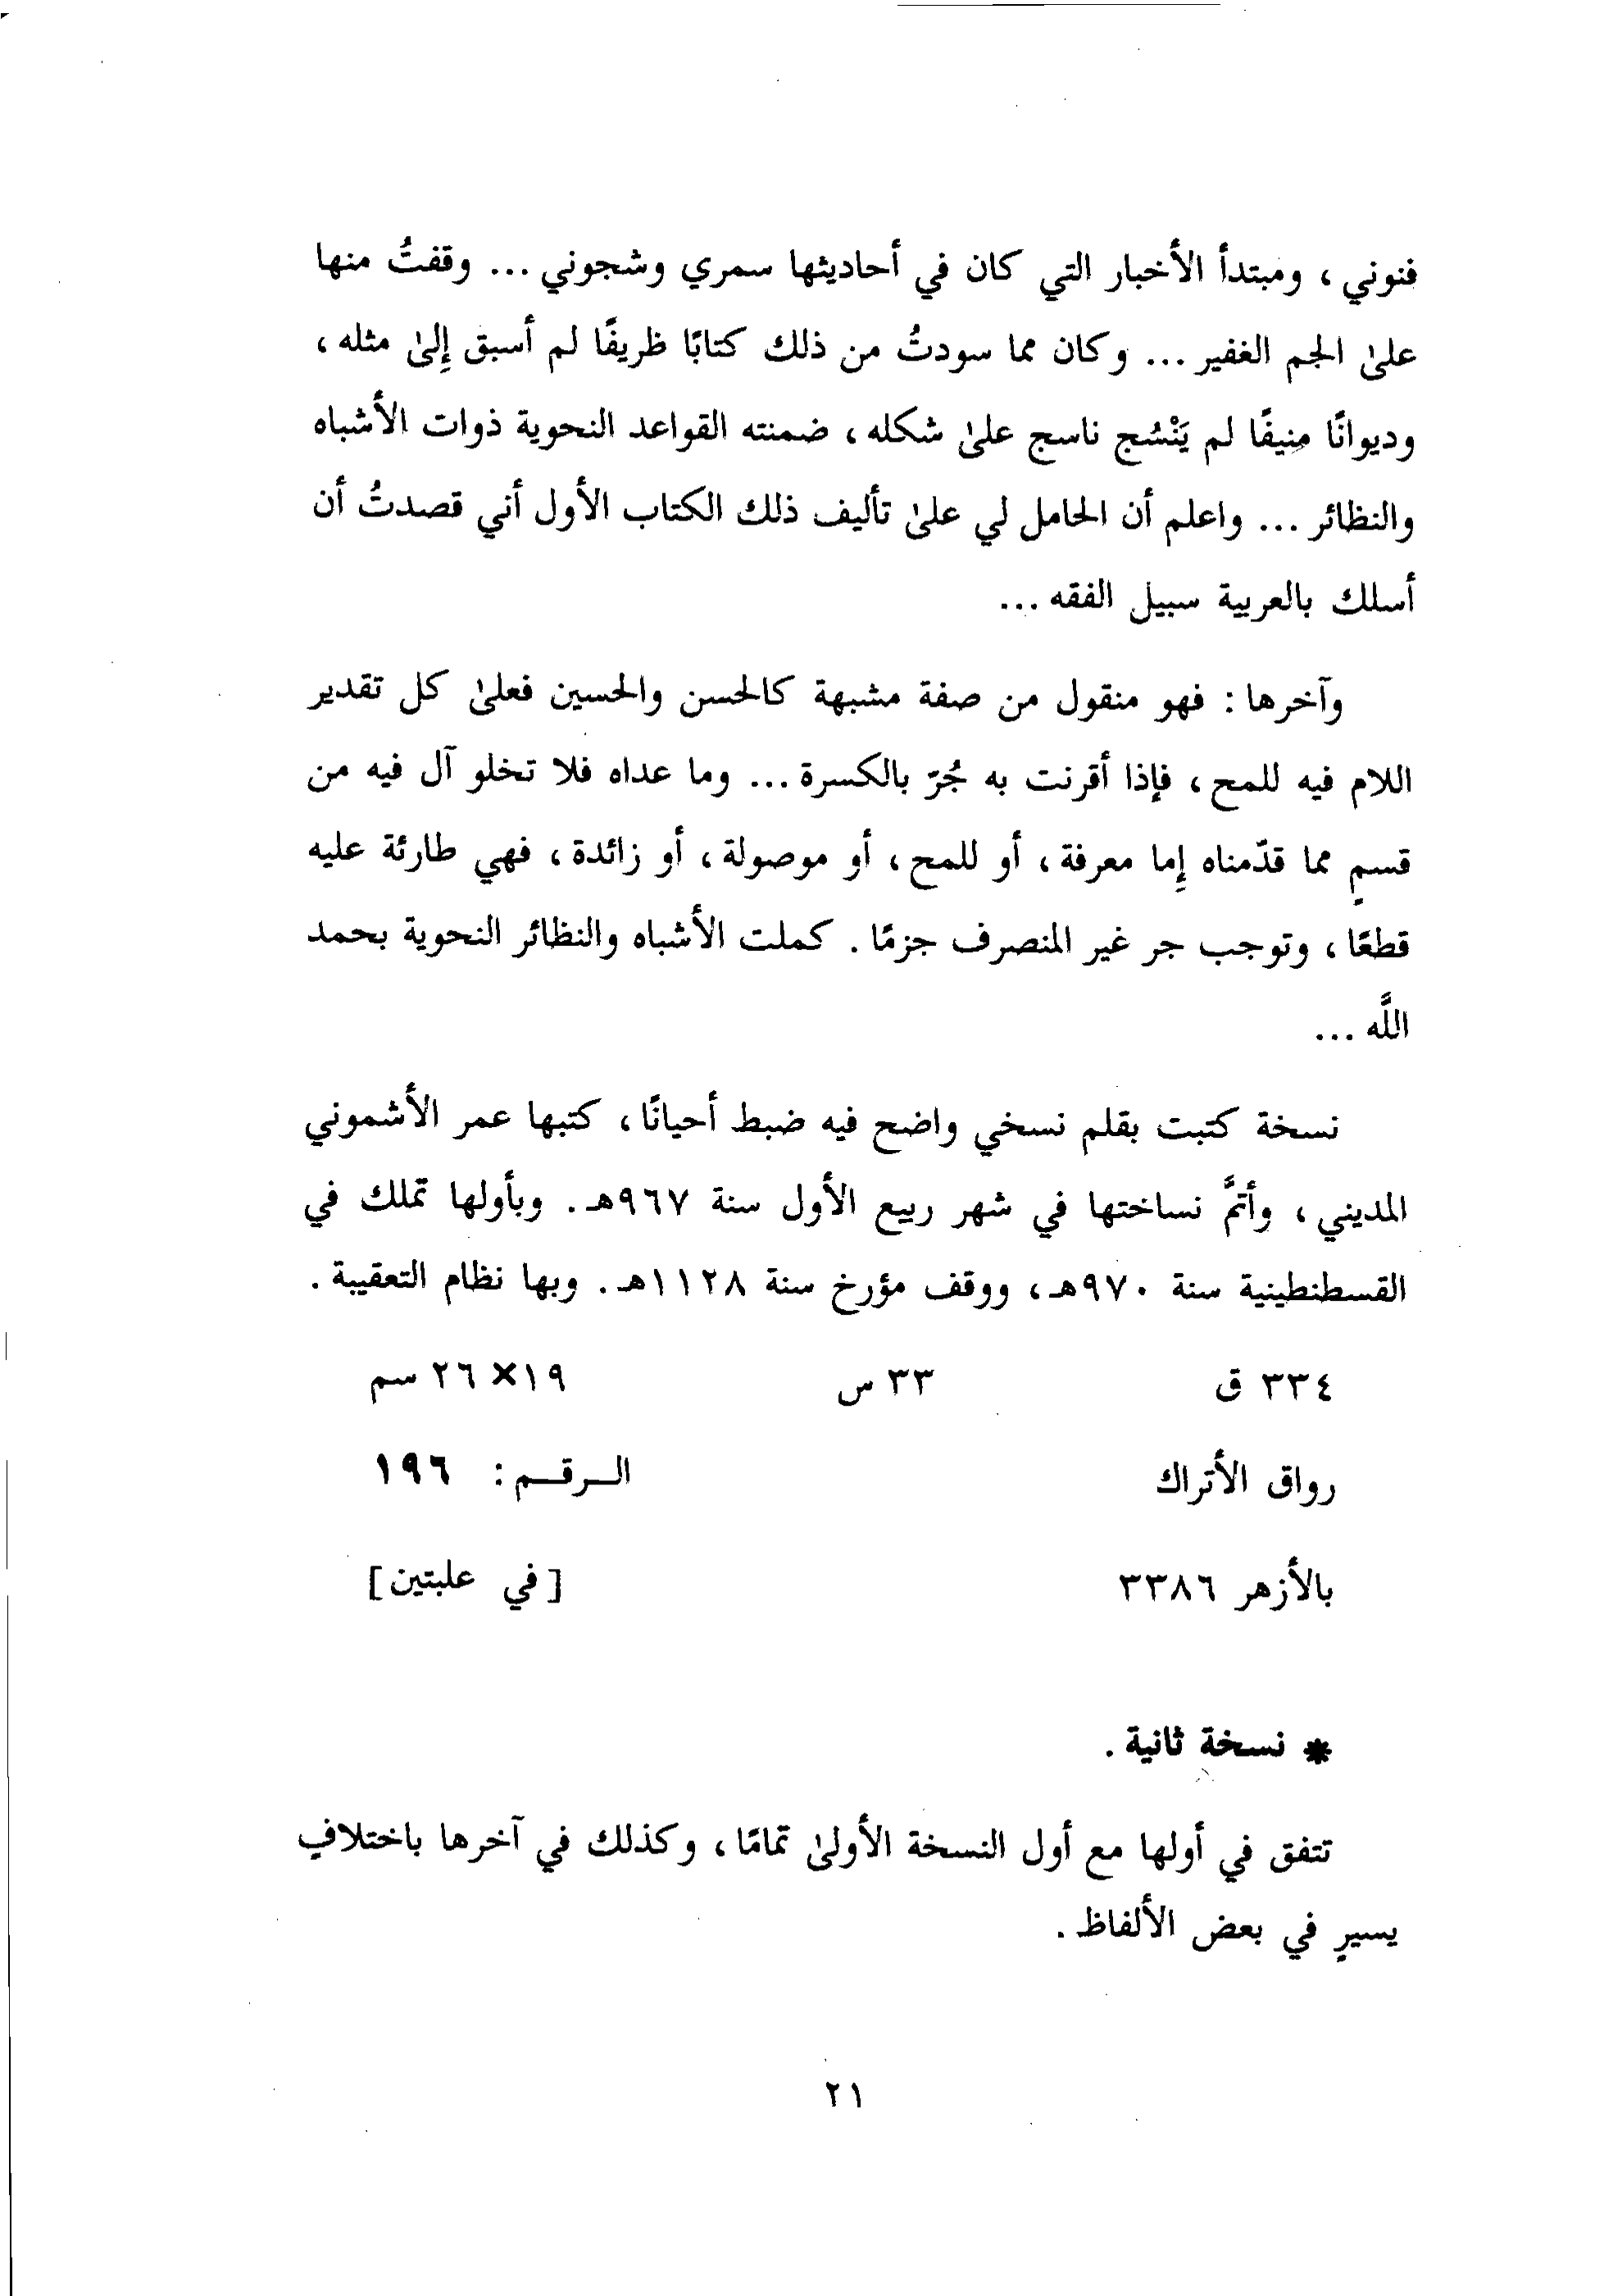 فنوني ، ومبتدأ الأخبار التي كان في أحاديثها سمري وشجوني ... وقفتُ منها
علىٰ الجم الغفير ... وكان مما سودتُ من ذلك كتابًا ظريفًا لم أسبق إِلىٰ مثله ،
وديوانًا مِنيفًا لم يَنْسُج ناسج علىٰ شكله ، ضمنته القواعد النحوية ذوات الأشباه
والنظائر ... واعلم أن الحامل لي علىٰ تأليف ذلك الكتاب الأول أني قصدتُ أن
أسلك بالعربية سبيل الفقه ...
وآخرها : فهو منقول من صفة مشبهة كالحسن والحسين فعلىٰ كل تقدير
اللام فيه للمح ، فإذا أقرنت به جُرّ بالكسرة ... وما عداه فلا تخلو آل فيه من
قسمٍ مما قدّمناه إِما معرفة ، أو للمح ، أو موصولة ، أو زائدة ، فهي طارئة عليه
قطعًا ، وتوجب جر غير المنصرف جزمًا . كملت الأشباه والنظائر النحوية بحمد
اللَّه ...
نسخة كتبت بقلم نسخي واضح فيه ضبط أحيانًا ، كتبها عمر الأشموني
المديني ، وأتمَّ نساختها في شهر ربيع الأول سنة ٩٦٧هـ . وبأولها تملك في
القسطنطينية سنة ٩٧٠هـ ، ووقف مؤرخ سنة ١١٢٨هـ . وبها نظام التعقيبة .
٣٣٤ ق ٣٣ س ١٩× ٢٦ سم
رواق الأتراك الـرقـم : ١٩٦
بالأزهر ٣٣٨٦ [ في علبتين ]
* نسخة ثانية .
تتفق في أولها مع أول النسخة الأولىٰ تمامًا ، وكذلك في آخرها باختلافٍ
يسيرٍ في بعض الألفاظ .
٢١